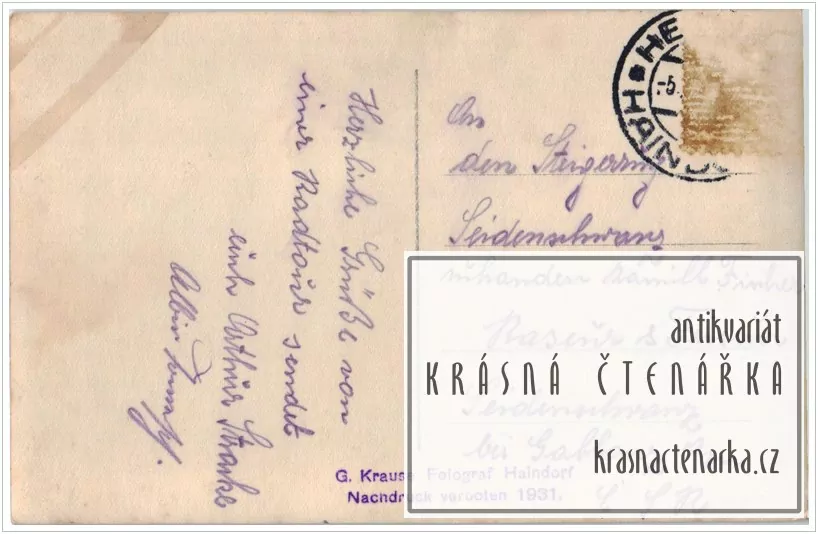 Herzliche Grüße von
einer Radtour sendet
euch Arthur
Albin
An
den Steigerring
Seidenschwanz
zuhanden Kamill Fischer
Raseur &
Seidenschwanz
bei Gablonz
Č.S.R.
HAINDO
-5.
G. Krause Fotograf Haindorf
Nachdruck verboten 1931.
antikvariát
KRÁSNÁ ČTENÁŘKA
krasnactenarka.cz